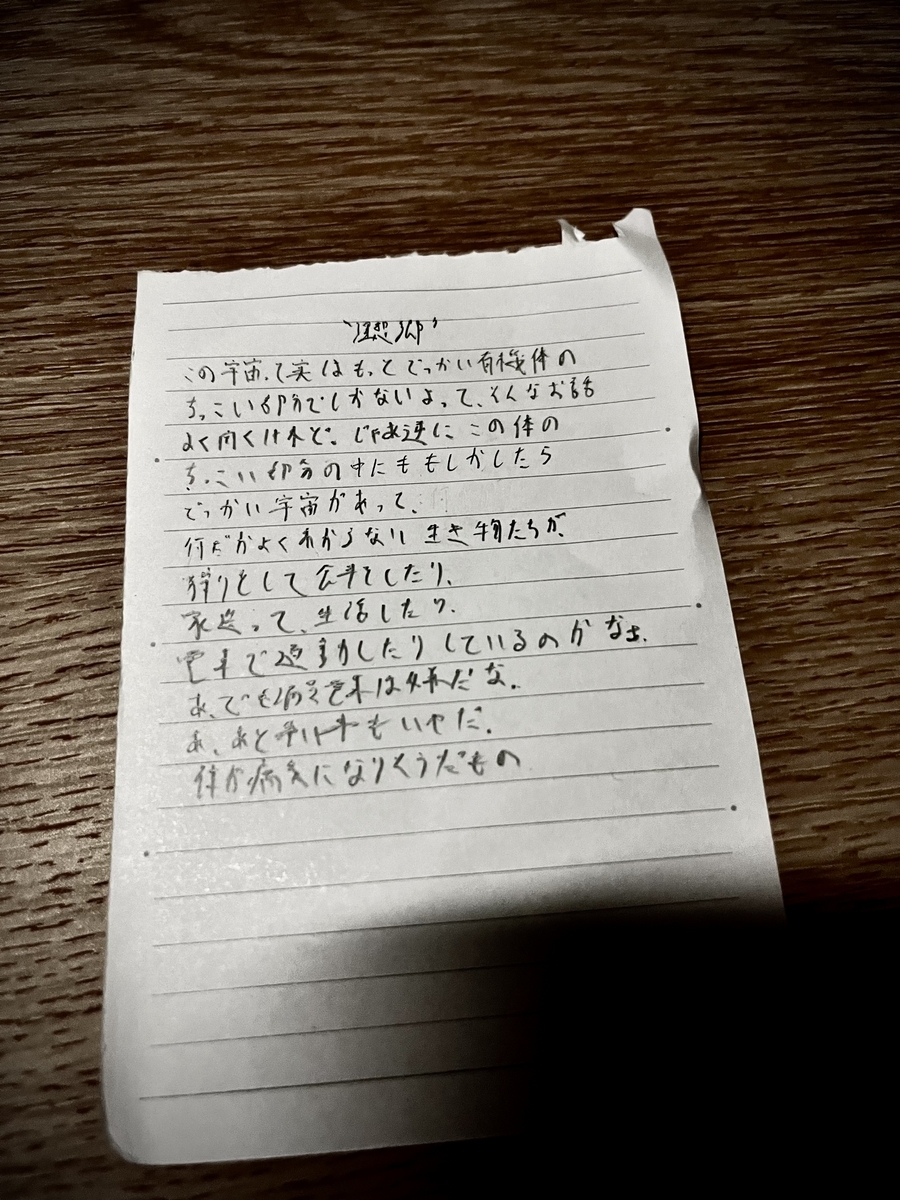 “理想郷”
この宇宙って実はもっとでっかい有機体の
ちっこい部分でしかないよって、そんなお話
よく聞くけれど。じゃあ逆にこの体の
ちっこい部分の中にももしかしたら
でっかい宇宙があって、
何だかよくわからない生き物たちが、
狩りをして食事をしたり、
家造って、生活したり、
電車で通勤したりしているのかなぁ.
あ、でも満員電車は嫌だな.
あ、あと争い事もいやだ.
体が病気になりそうだもの